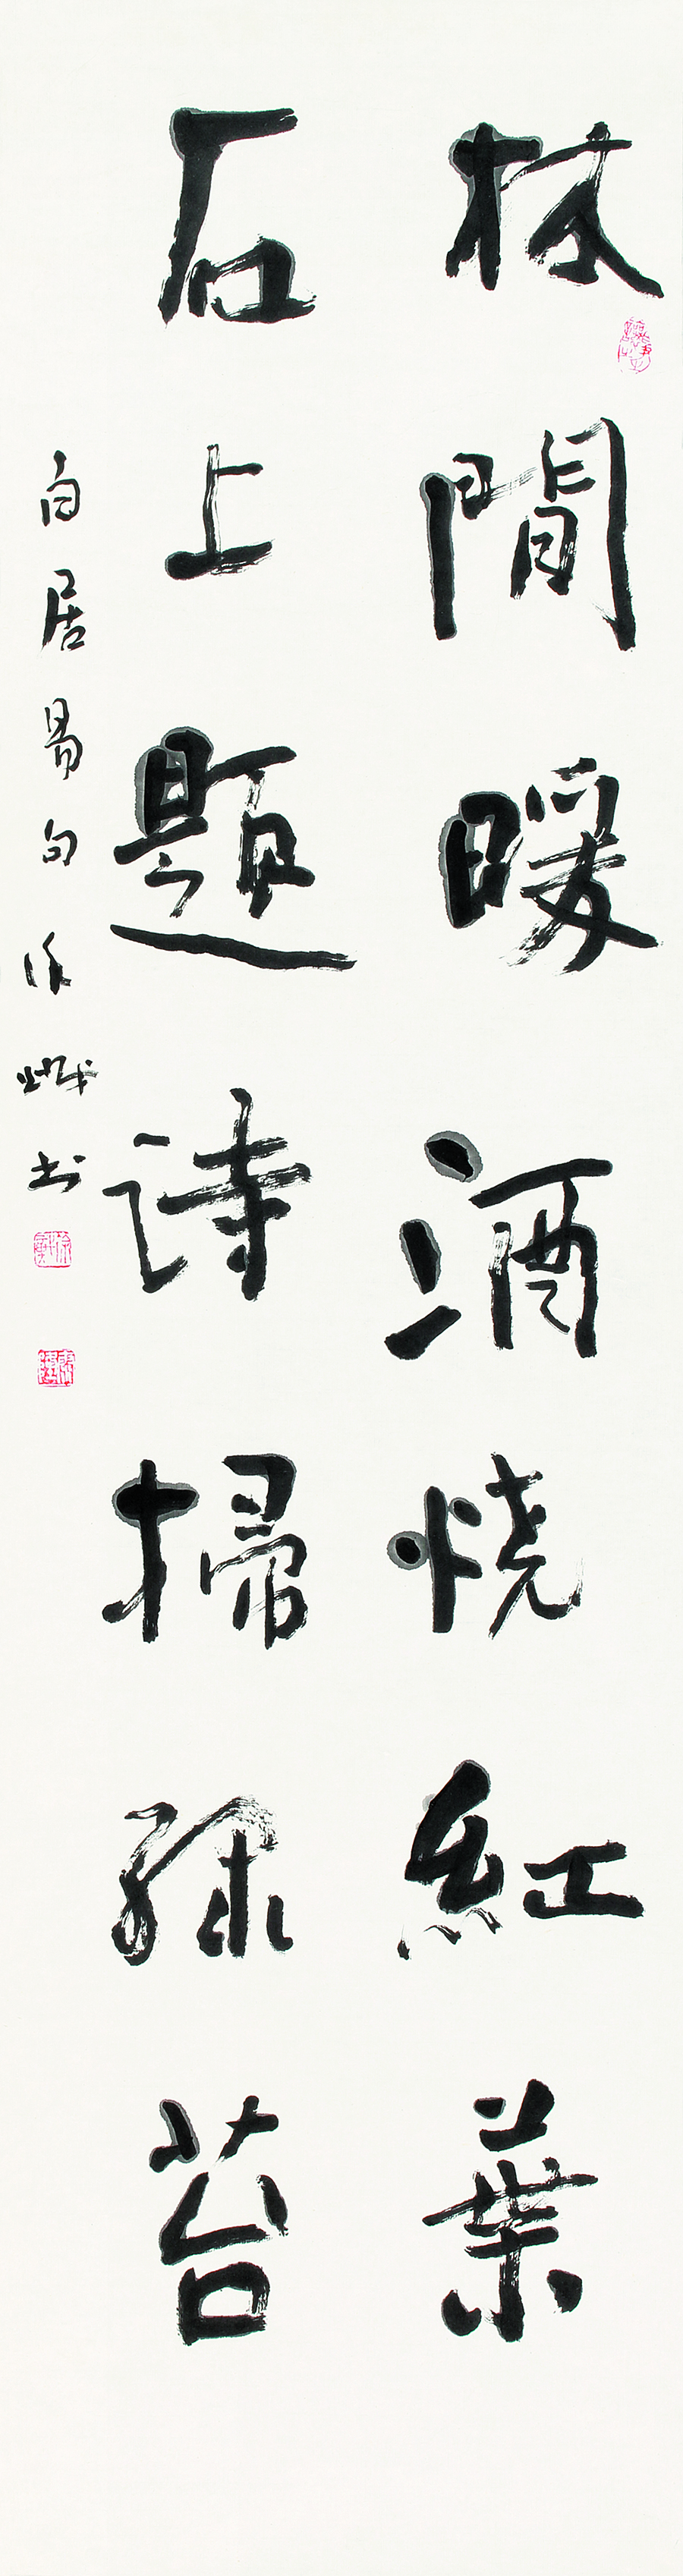 林間暖酒烧紅葉
石上題詩掃緑苔
白居易句徐书